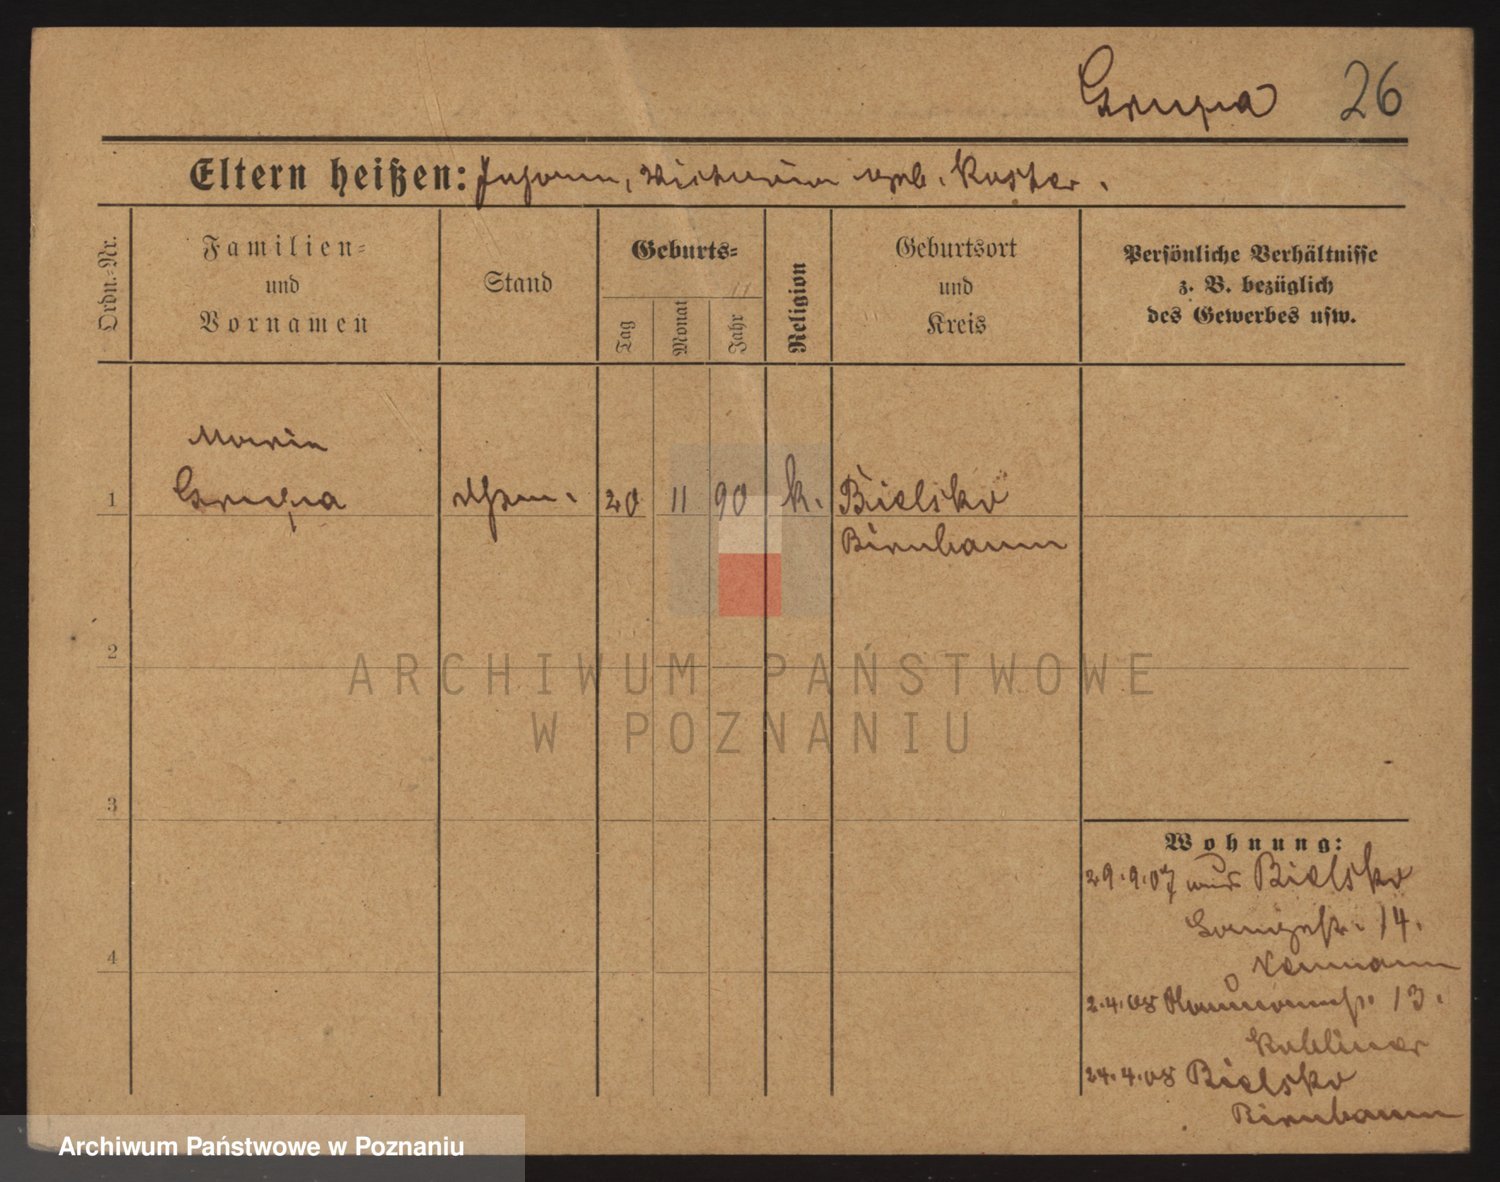 Grupa 26
Eltern heißen: Johann, Victoria geb. Koster.
Ordn.-Nr.
Familien-
und
Vornamen
Stand
Geburts-
11
Tag
Monat
Jahr
Religion
Geburtsort
und
Kreis
Persönliche Verhältnisse
z. B. bezüglich
des Gewerbes usw.
Maria
1 Grupa 20 11 90 k. Bielsko
Birnbaum
2
ARCHIWUM PAŃSTWOWE
W POZNANIU
3
Wohnung:
29.9.07 aus Bielsko
14.
2.4.08 13.
24.4.08 Bielsko
Birnbaum
4
Archiwum Państwowe w Poznaniu